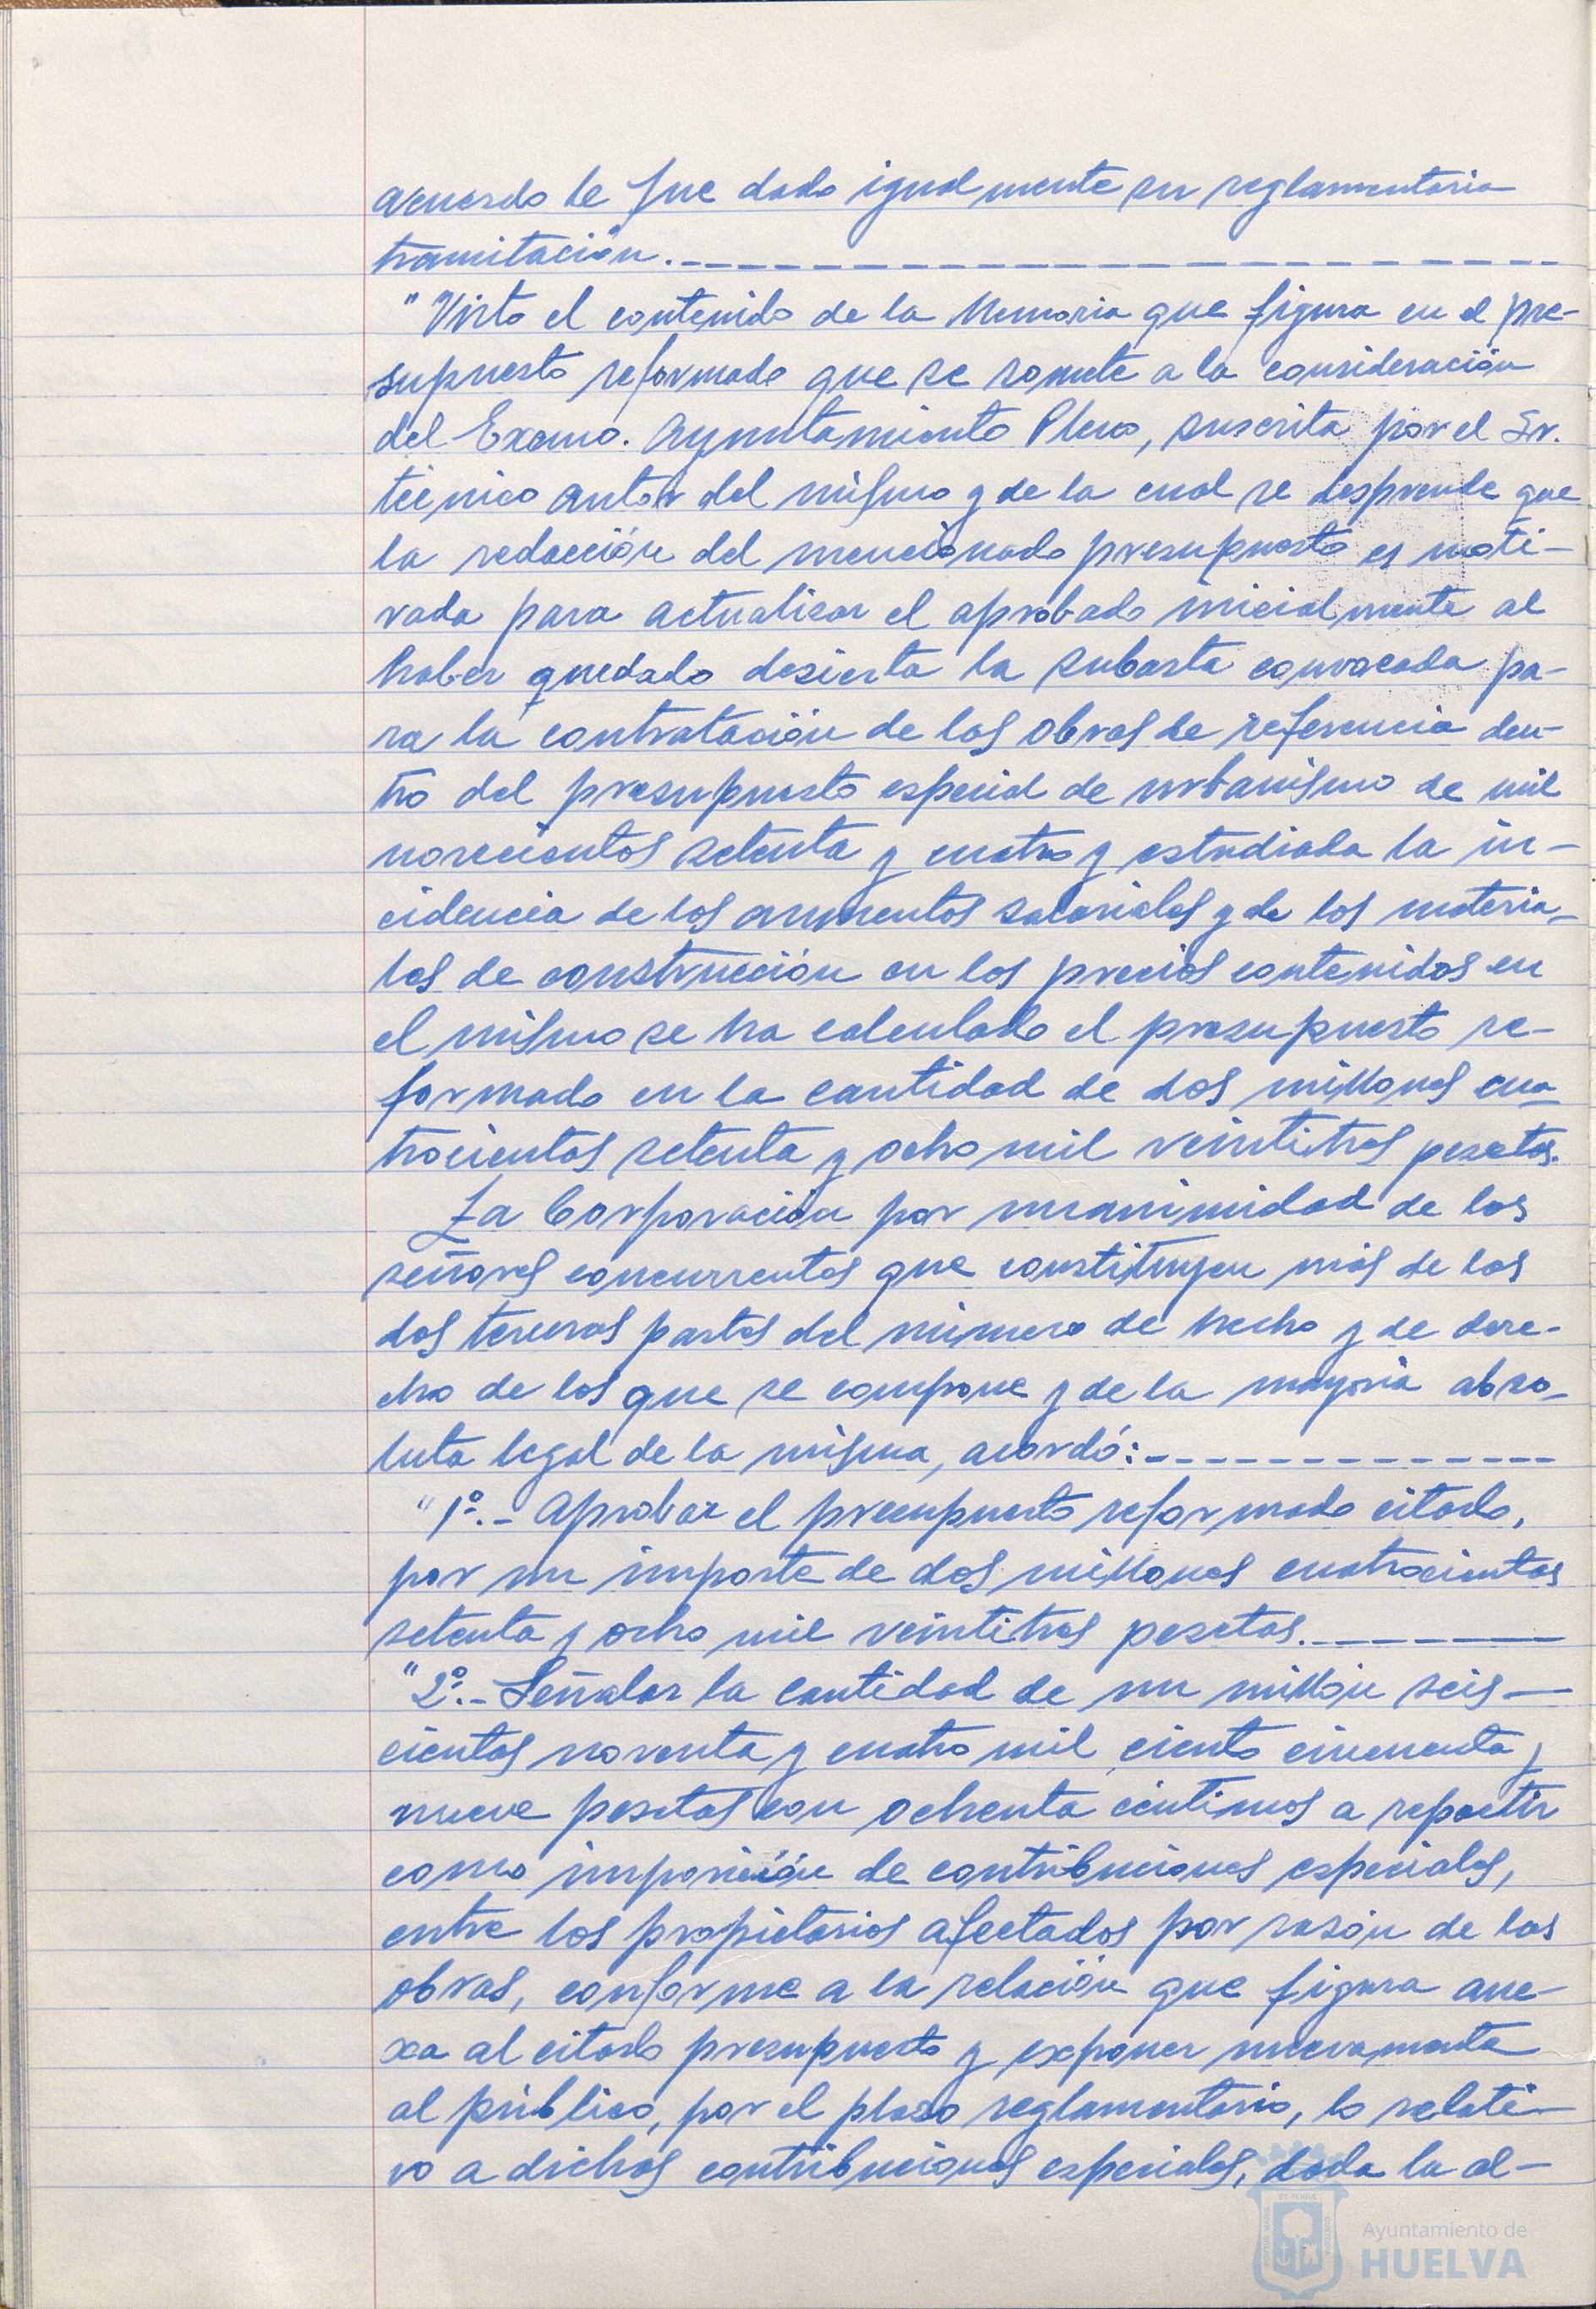 acuerdo le fue dado igualmente su reglamentaria
tramitación.
"Visto el contenido de la Memoria que figura en el pre-
supuesto reformado que se somete a la consideración
del Excmo. Ayuntamiento Pleno, suscrita por el Sr.
técnico autor del mismo y de la cual se desprende que
la redacción del mencionado presupuesto es moti-
vada para actualizar el aprobado inicialmente al
haber quedado desierta la subasta convocada pa-
ra la contratación de las obras de referencia den-
tro del presupuesto especial de urbanismo de mil
novecientos setenta y cuatro y estudiada la in-
cidencia de los aumentos salariales y de los materia-
les de construcción en los precios contenidos en
el mismo se ha calculado el presupuesto re-
formado en la cantidad de dos millones cua-
trocientas setenta y ocho mil veintitres pesetas.
La Corporación por unanimidad de los
señores concurrentes que constituyen más de las
dos terceras partes del número de hecho y de dere-
cho de los que se compone y de la mayoría abso-
luta legal de la misma, acordó:
"1º.- Aprobar el presupuesto reformado citado,
por un importe de dos millones cuatrocientas
setenta y ocho mil veintitres pesetas.
"2º.- Señalar la cantidad de un millón seis-
cientas noventa y cuatro mil ciento cincuenta y
nueve pesetas con ochenta céntimos a repartir
como imposición de contribuciones especiales,
entre los propietarios afectados por razón de las
obras, conforme a la relación que figura ane-
xa al citado presupuesto y exponer nuevamente
al público, por el plazo reglamentario, lo relati-
vo a dichas contribuciones especiales, dada la al-
Ayuntamiento de
HUELVA